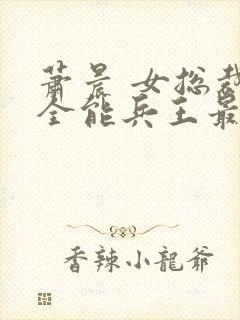 萧晨 女总裁
全能兵王最
香辣小龍爺